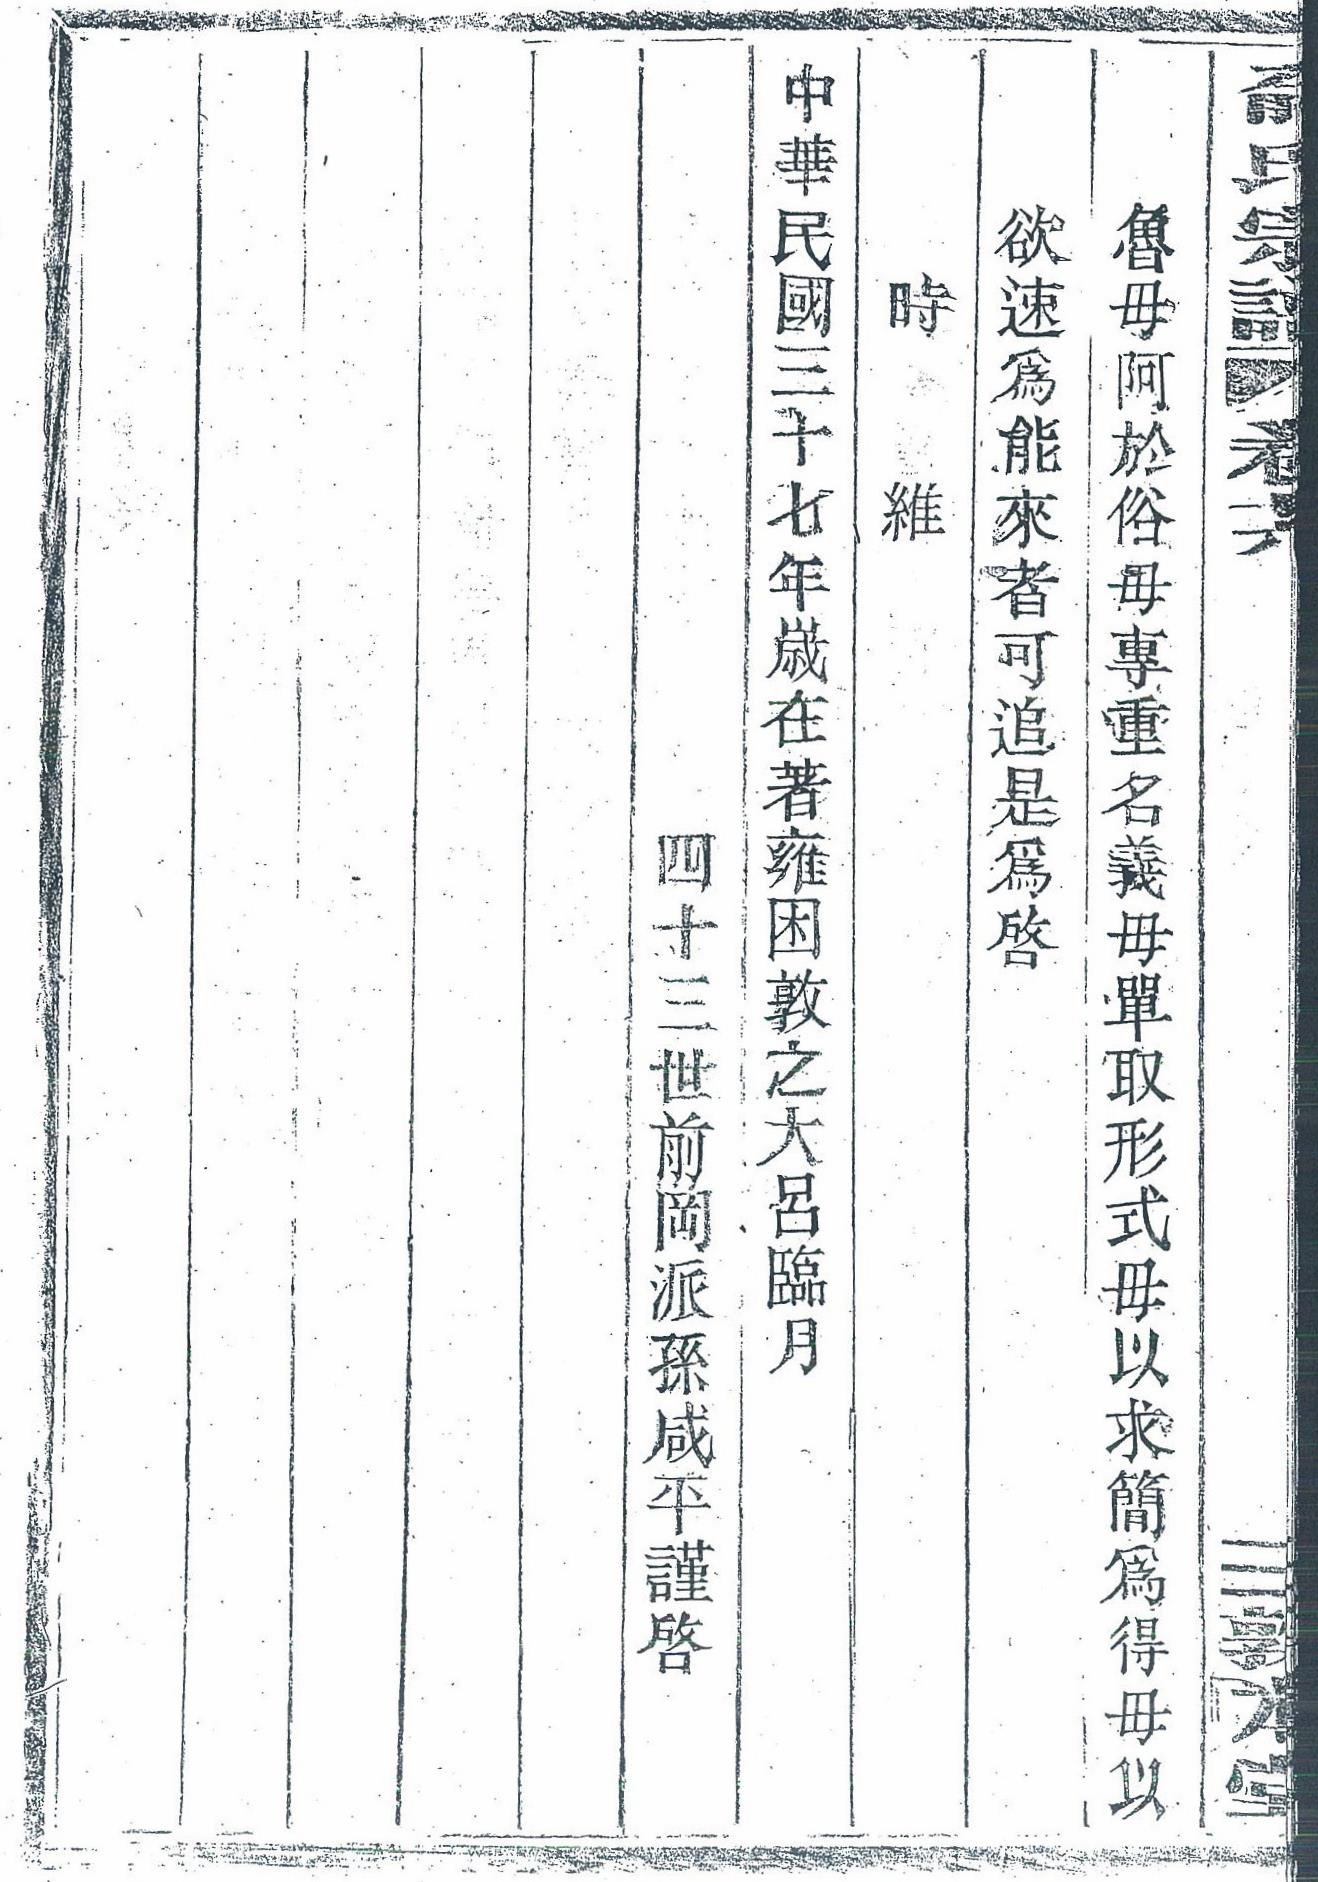 氏宗譜 卷六 三 敦本堂
魯毋阿於俗毋專重名義毋單取形式毋以求簡爲得毋以
欲速爲能來者可追是爲啓
時維
中華民國三十七年歲在著雍困敦之大呂臨月
四十三世前岡派孫咸平謹啓